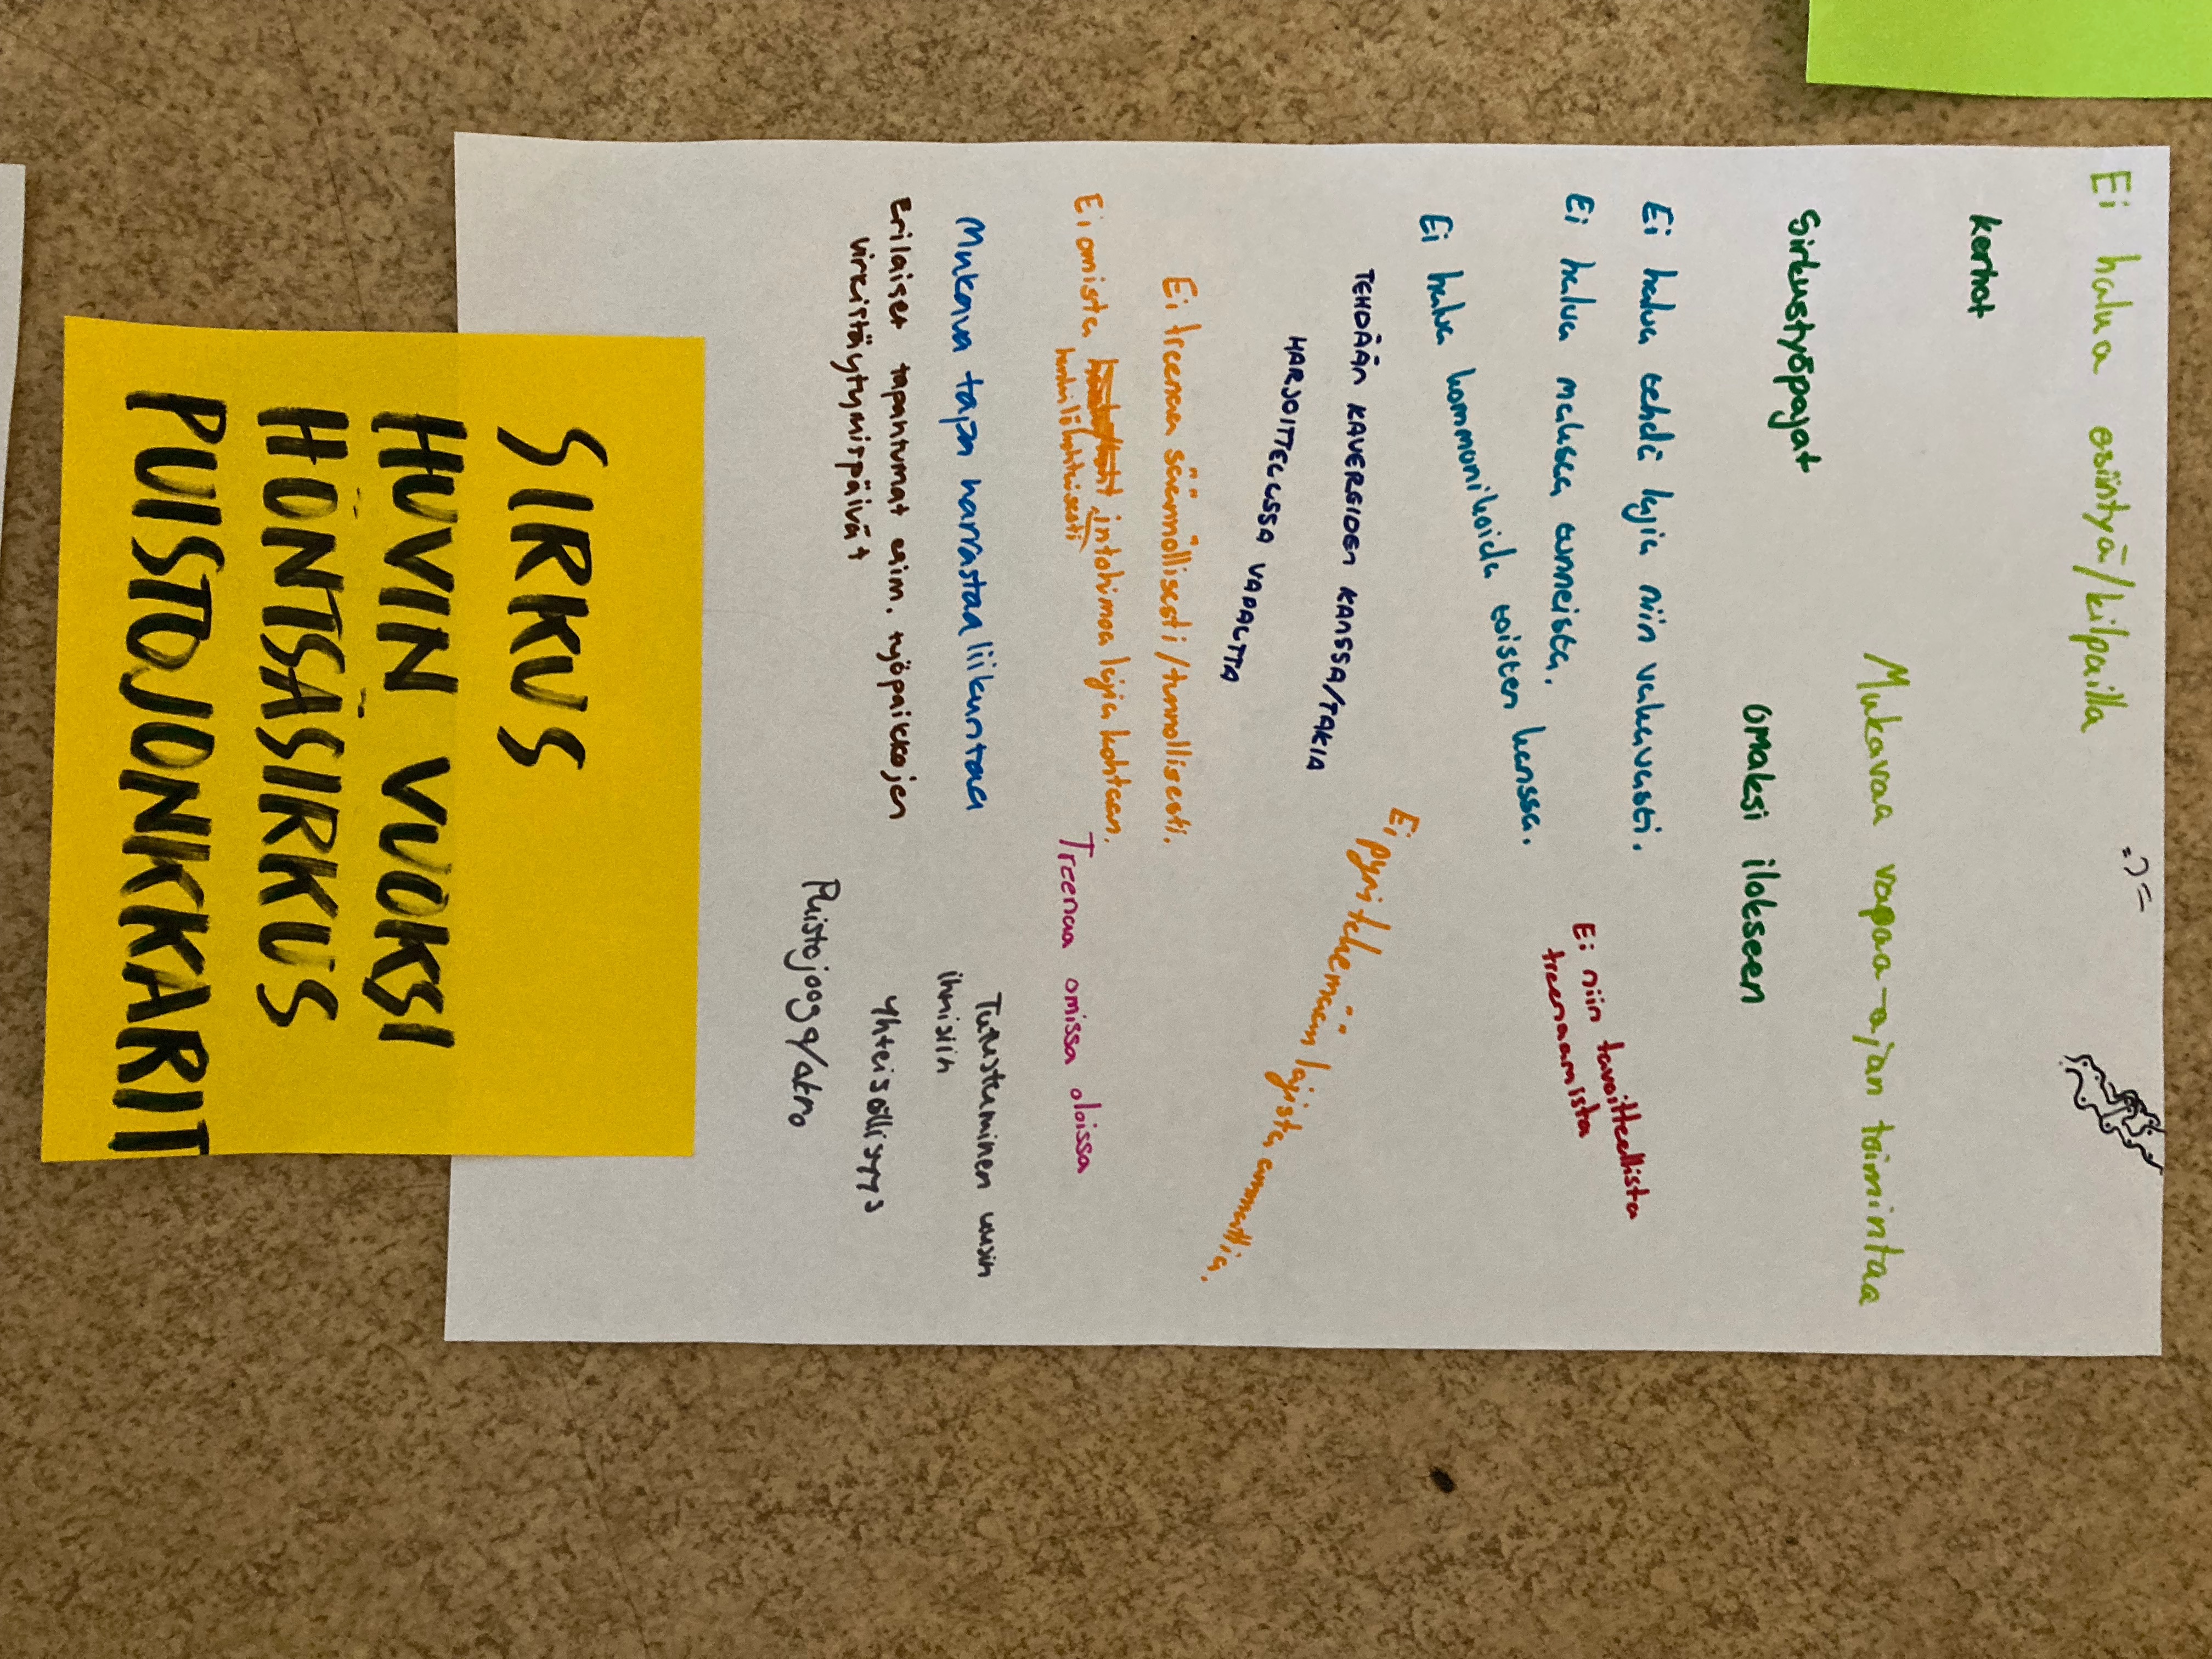 Ei halua esiintyä/kilpailla
=)
kerhot
Mukavaa vapaa-ajan toimintaa
Sirkustyöpajat
omaksi ilokseen
Ei halua tehdä lajia niin vakavasti.
Ei halua maksaa tunneista.
Ei niin tavoitteellista
treenaamista
Ei halua kommunikoida toisten kanssa.
TEHDÄÄN KAVEREIDEN KANSSA/TAKIA
HARJOITTELUSSA VAPAUTTA
Ei pyri tekemään lajista ammattia.
Ei treenaa säännöllisesti/tunnollisesti.
Ei omista intohimoa lajia kohtaan.
Treenaa omissa oloissa
Mukava tapa harrastaa liikuntaa
Tutustuminen uusiin
ihmisiin
Erilaiset tapahtumat esim. työpaikkojen
virkistäytymispäivät
yhteisöllisyys
Puistojooga/akro
SIRKUS
HUVIN VUOKSI
HÖNTSÄSIRKUS
PUISTOJONKKARIT